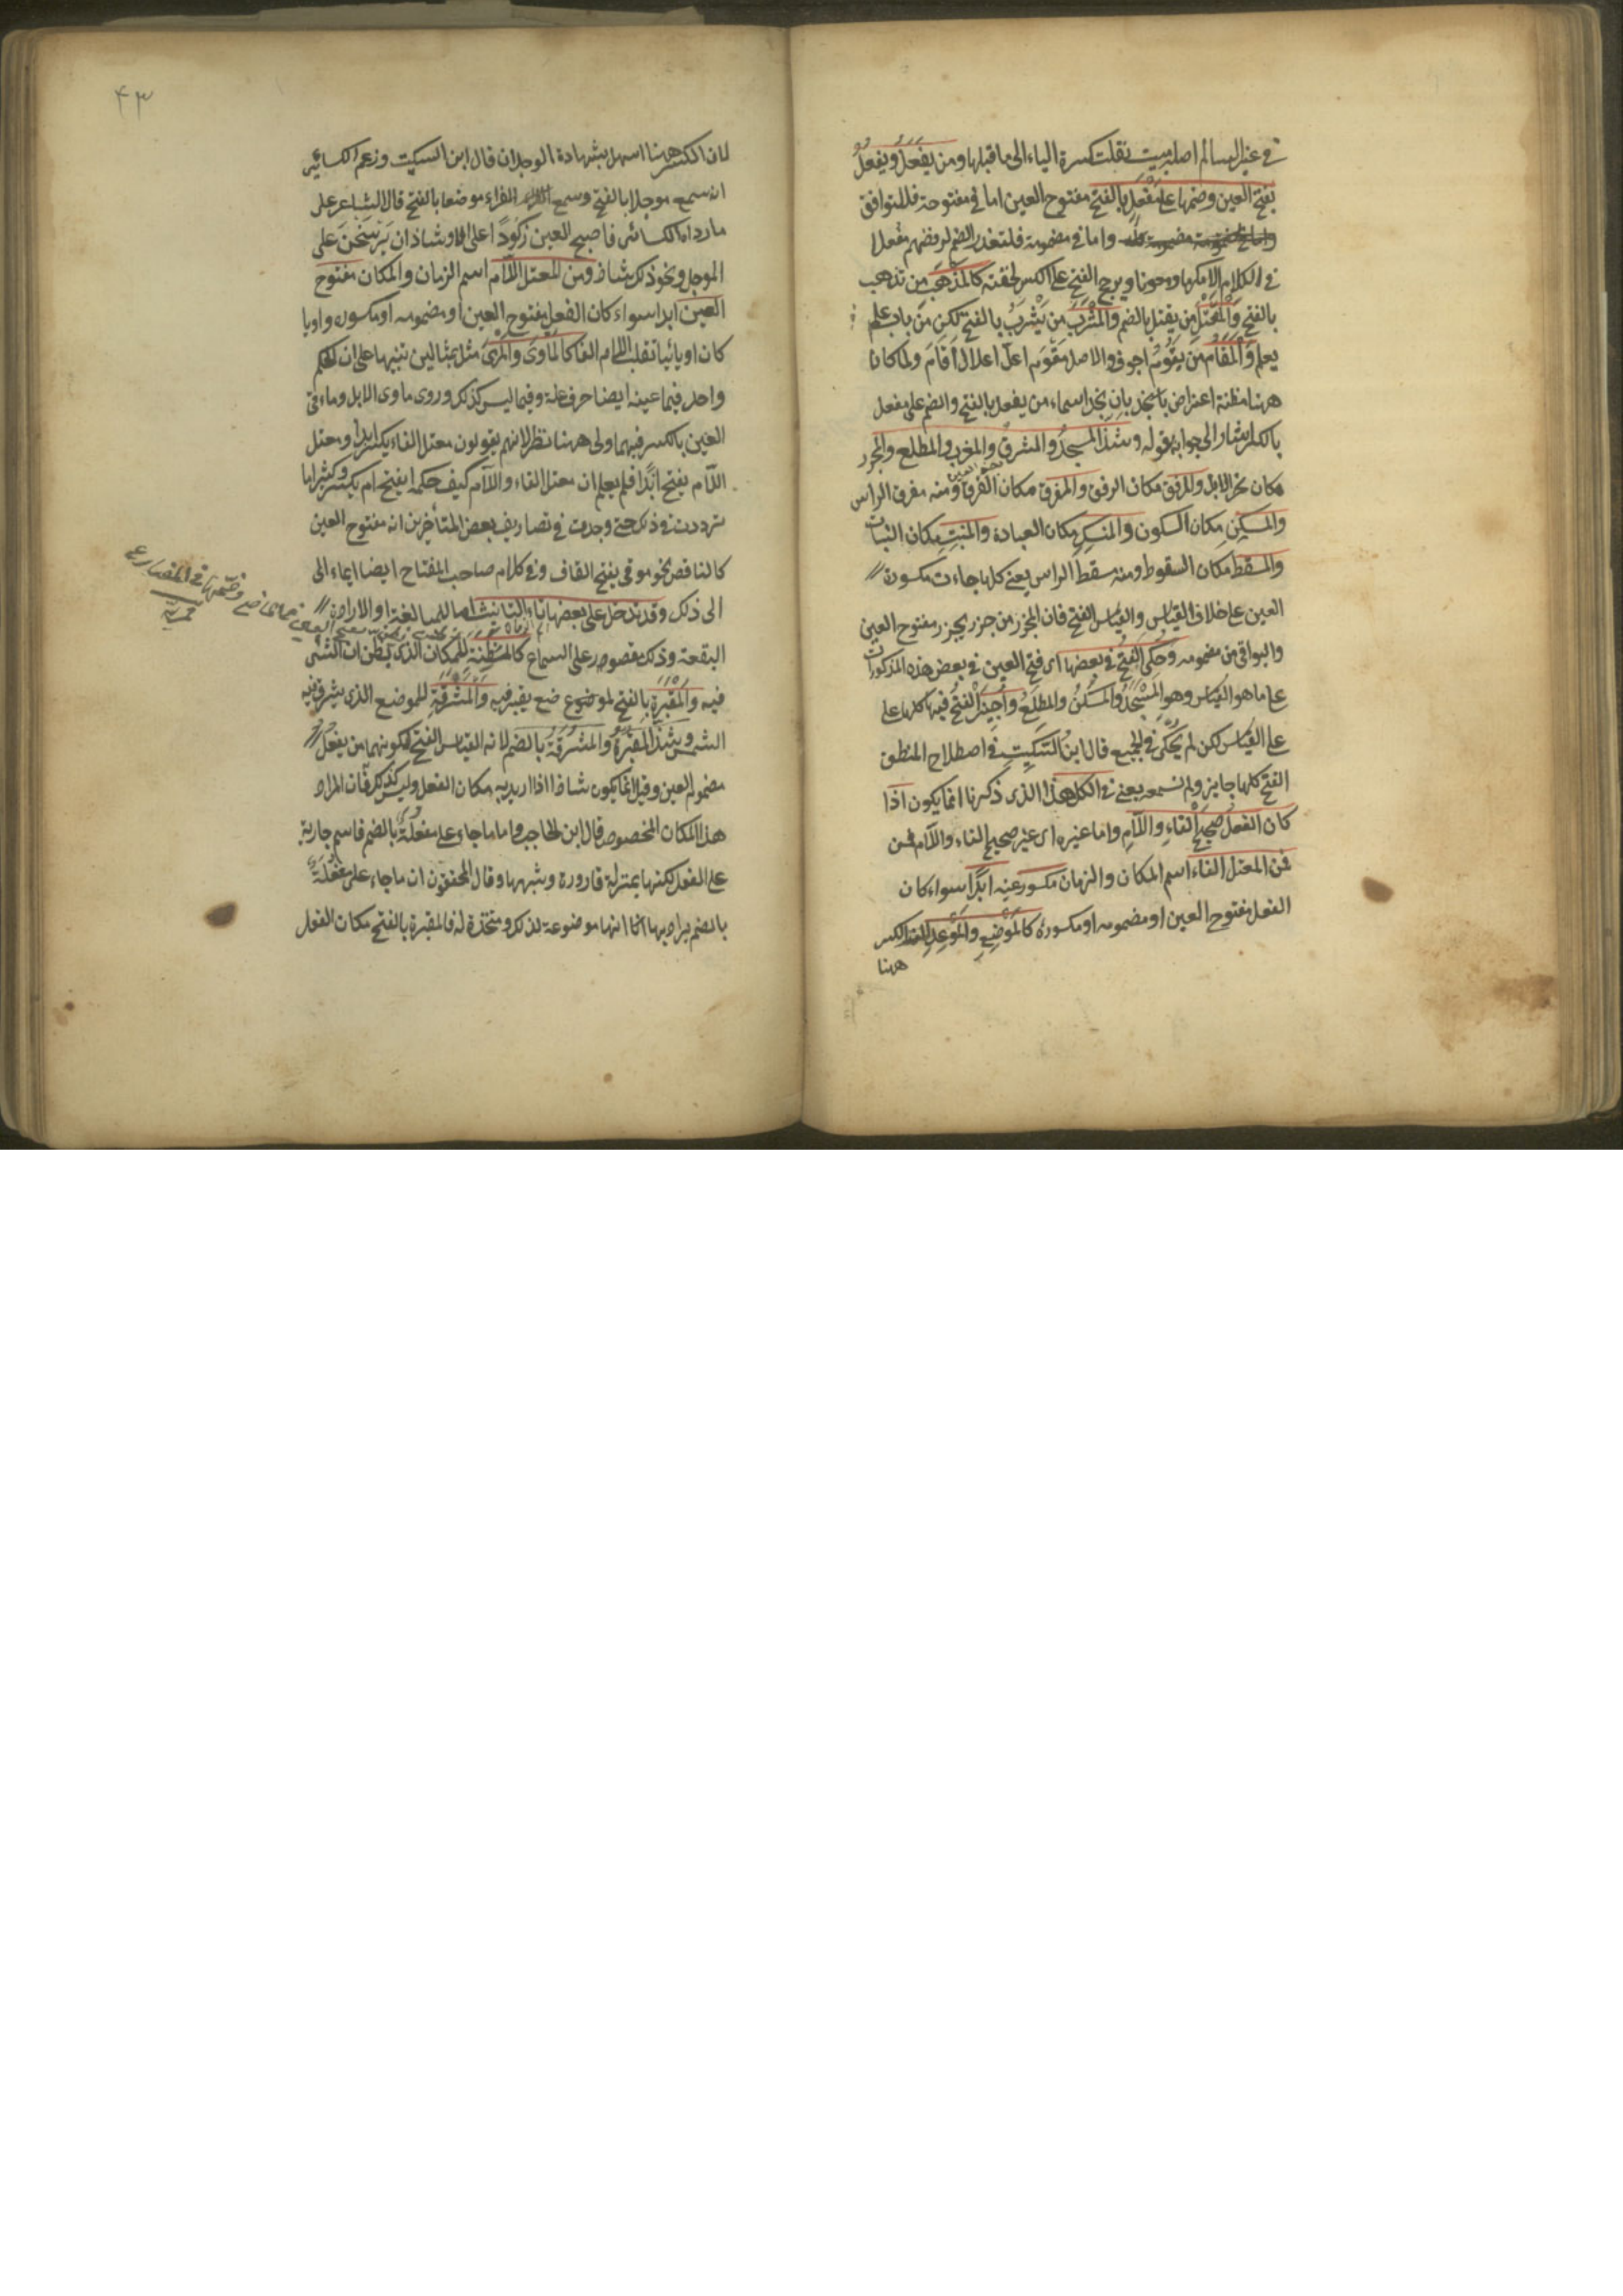 في غير السالم اصله مبيت نقلت كسرة الياء الى ما قبلها ومن يفعَل ويفعُل
بفتح العين وضمها على مَفْعَل بالفتح مفتوح العين اما في مفتوحة فللتوافق
واما في مضمومة فلتعذر الضم لرفضهم مفعلا
في الكلام الا مكرما ومعونا ويرجح الفتح على الكسر لخفته كالمَذْهَب من يذهب
بالفتح والمَقْتَل من يقتل بالضم والمَشْرَب من يَشْرَبُ بالفتح لكن من باب علم
يعلم والمَقَام من يقوم اجوف والاصل مَقْوَم اعل اعلال اَقَامَ ولما كان
ههنا مظنة اعتراض بانا نجد اسماء من يفعل بالفتح والضم على مفعل
بالكسر اشار الى جوابه بقوله وشذ المسجد والمشرق والمغرب والمطلع والمجزر
مكان نحر الابل والمرفق مكان الرفق والمفرق مكان الفرق ومنه مفرق الراس
والمسكن مكان السكون والمنسك مكان العبادة والمنبت مكان النبات
والمسقط مكان السقوط ومنه مسقط الراس يعني كلها جاءت مكسورة
العين على خلاف القياس والقياس الفتح فان المجزر من جزر يجزر مفتوح العين
والبواقي من مضمومه وحكي الفتح في بعضها اى فتح العين في بعض هذه المذكورات
على ما هو القياس وهو المسجد والمسكن والمطلع واجيز الفتح فيها كلها على
على القياس لكن لم يحكى في الجميع قال ابن السكيت في اصطلاح المنطق
الفتح كلها جايز ولم نسمعه يعني في الكل هذا الذى ذكرنا انما يكون اذا
كان الفعل صحيح الفاء واللام واما غيره اى غير صحيح الفاء واللام فمن
فمن المعتل الفاء اسم المكان والزمان مكسور عينه ابدًا سواء كان
الفعل مفتوح العين او مضمومه او مكسوره كالموضع والموعد الكسر
ههنا
٤٣
لان الكسر ههنا اسهل بشهادة الوجدان قال ابن السكيت وزعم الكسائي
انه سمع موجلا بالفتح وسمع الفراء موضعا بالفتح قال الشاعر على
ما رواه الكسائي فاصبح العين ركودًا على الاوشاذ ان يرسخن على
الموجل ونحو ذلك شاذ ومن المعتل اللام اسم الزمان والمكان مفتوح
العين ابدا سواء كان الفعل مفتوح العين او مضمومه او مكسوره واويا
كان او يائيا تقلب اللام الفا كالمأوى والمرمى مثل بمثالين تنبيها على ان الحكم
واحد فيما عينه ايضا حرف علة وفيما ليس كذلك وروى ماوى الابل وماءقى
العين بالكسر فيهما ولى ههنا نظر لانهم يقولون معتل الفاء يكسر ابدا ومعتل
اللام يفتح ابدًا فلم يعلم ان معتل الفاء واللام كيف حكمه ايفتح ام يكسر وكثيرا ما
ترددت في ذلك حتى وجدت في تصاريف بعض المتأخرين انه مفتوح العين
كالناقص نحو موقى بفتح القاف وفى كلام صاحب المفتاح ايضا ايماء الى
الى ذلك وقد تدخل على بعضها تاء التانيث اما للمبالغة او لارادة
البقعة وذلك مقصور على السماع كالمظنة للمكان الذى يظن ان الشئ
فيه والمقبرة بالفتح لموضع يقبر فيه والمشرقة للموضع الذى يشرق فيه
الشمس وشذ المقبُرة والمشرُقة بالضم لانه القياس الفتح لكونهما من يفعل
مضموم العين وقيل انما يكون شاذا اذا اريد به مكان الفعل وليس كذلك فان المراد
هذا المكان المخصوص قال ابن الحاجب واما ما جاء على مفعلة بالضم فاسم جارية
على الفعل لكنها بمنزلة قارورة وشبهها وقال المحققون ان ما جاء على مفعُلة
بالضم يراد بها انها موضوعة لذلك ومتخذة له فالمقبرة بالفتح مكان الفعل